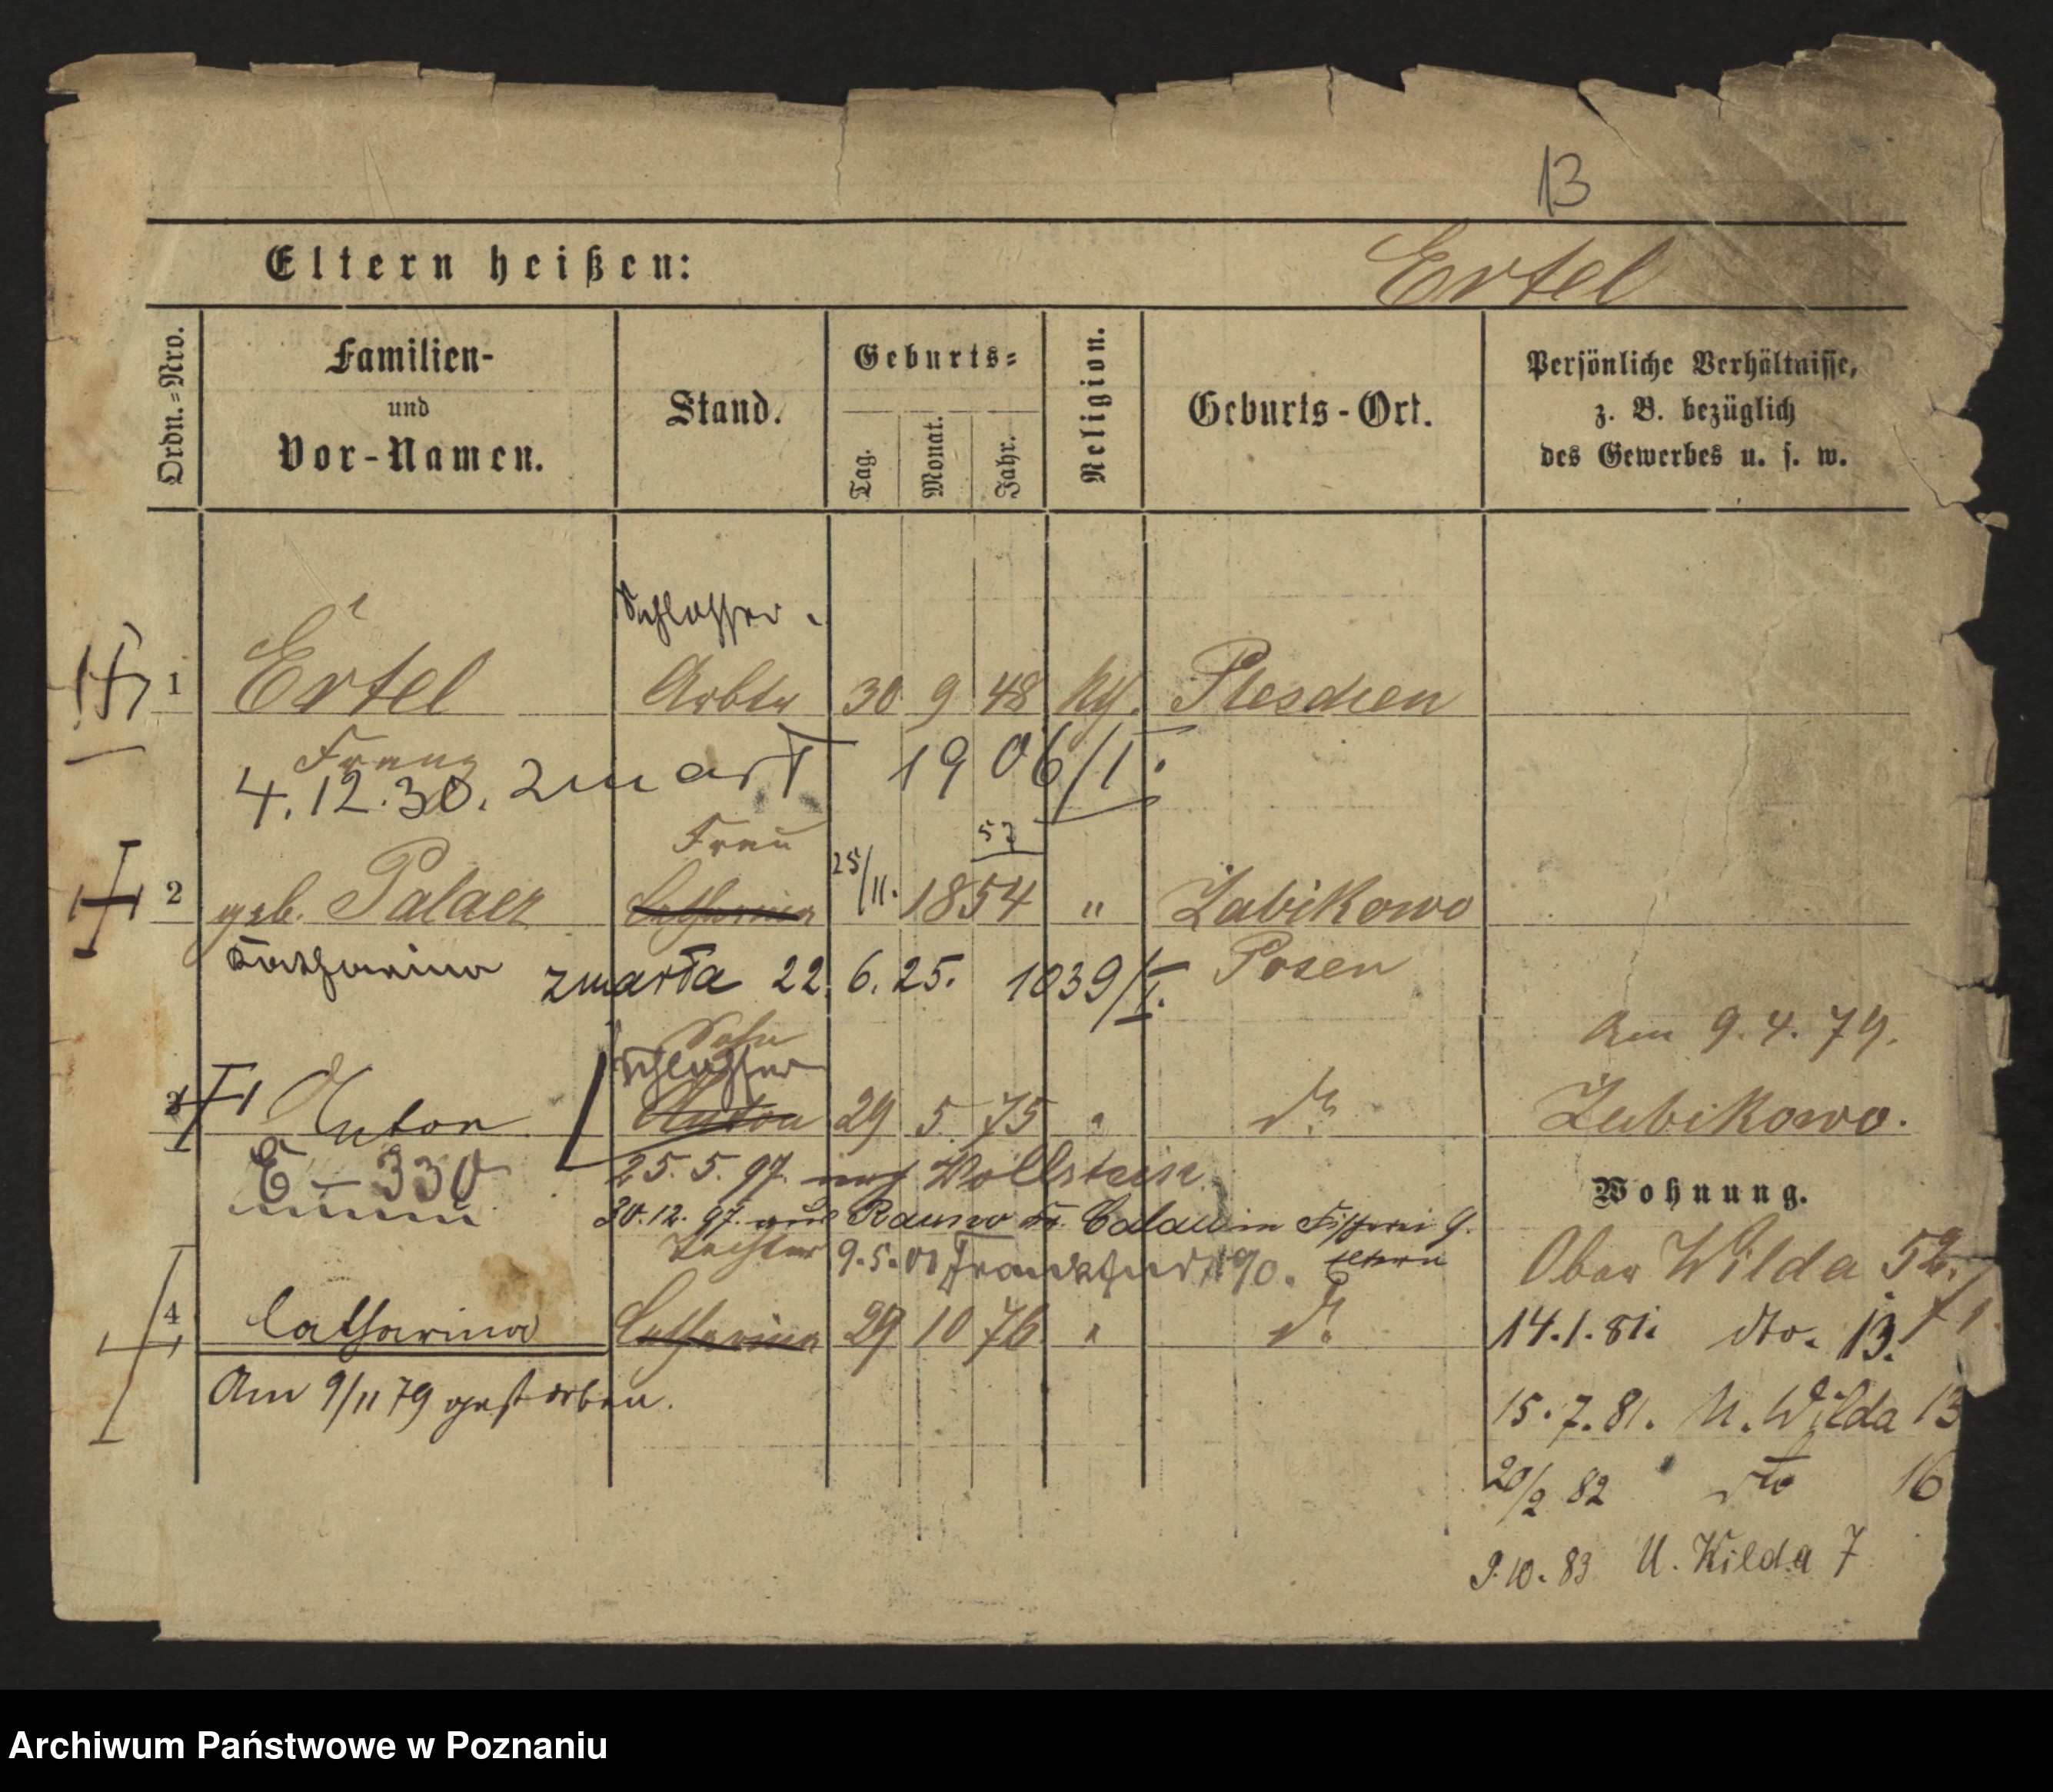 13
Eltern heißen: Ertel
Ordn.-Nro. Familien- und Vor-Namen. Stand. Geburts- Tag. Monat. Jahr. Religion. Geburts-Ort. Persönliche Verhältnisse, z. B. bezüglich des Gewerbes u. s. w.
Schlosser.
1 Ertel Arbtr 30 9 48 kth. Pleschen
Franz
4.12.30. zmarł 1906/I.
Frau 57
2 geb. Palacz Catharina 25/11. 1854 " Żabikowo
Catharina zmarła 22.6.25. 1039/I. Posen
Sohn am 9.4.79.
Schlosser
3 Anton Anton 29 5 75 " do Zabikowo.
E – 330 25.5.97. nach Wollstein
Wohnung.
30.12.97. aus Rauno Kr. Calau in Fischerei 9. Eltern
Tochter 9.5.00 Frankfurt 190. Ober Wilda 52.
4 Catharina Catharina 29 10 76 " do 14.1.81. dto. 13.
Am 9/11 79 gestorben.
15.7.81. U. Wilda 13
20/2 82 dto 16
9.10.83 U. Wilda 7
Archiwum Państwowe w Poznaniu